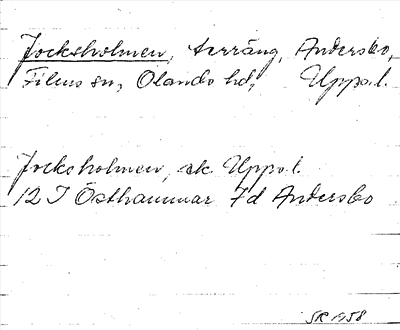 Jocksholmen, terräng, Andersbo,
Films sn, Olands hd, Upps. l.
Jocksholmen, ek. Upps. l.
12 I Östhammar 7d Andersbo
SR 1958